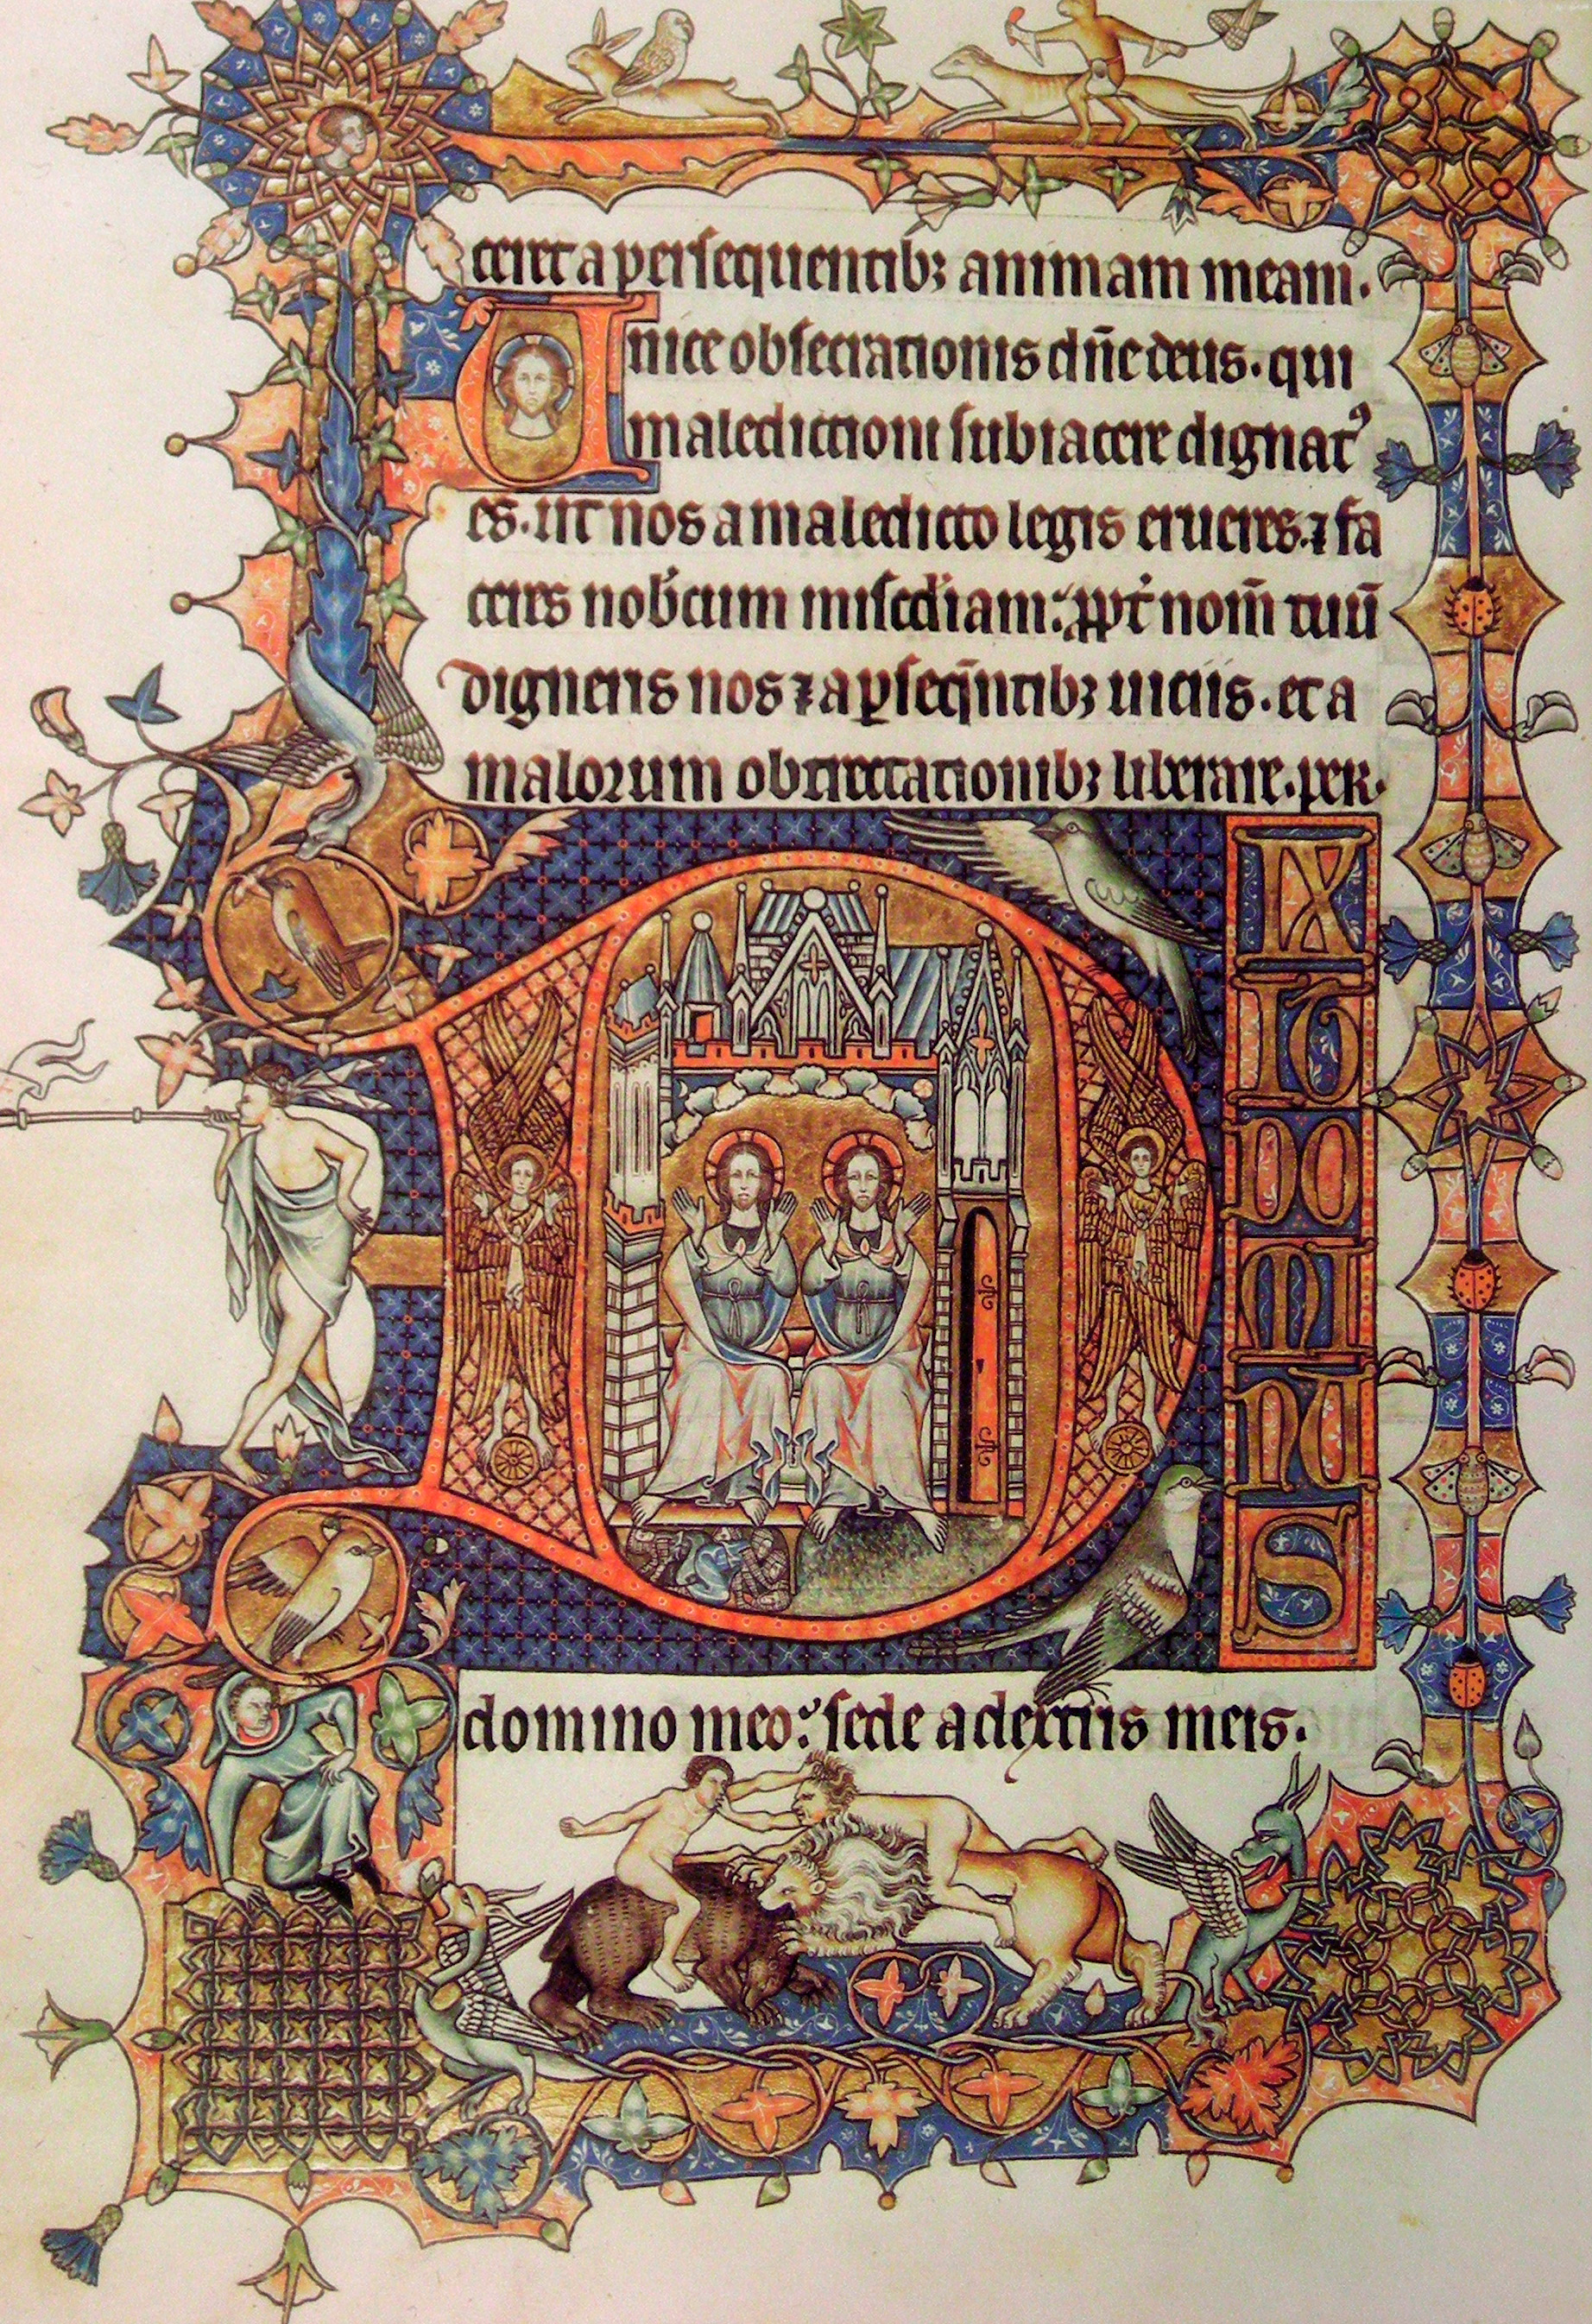 ceret a persequentibꝫ animam meam.
Unice obsecrationis dn̄e deus. qui
maledictioni subiacere dignatꝰ
es. ut nos a maledicto legis erueres. ⁊ fa
ceres nob̾cum misc̾diam: ꝓpt̾ nom̄ tuū
digneris nos ⁊ a ꝑseq̄ntibꝫ uiciis. et a
malorum obtrectationibꝫ liberare. per.
DIXIT
DO
MI
N
S
domino meo: sede a dextris meis.